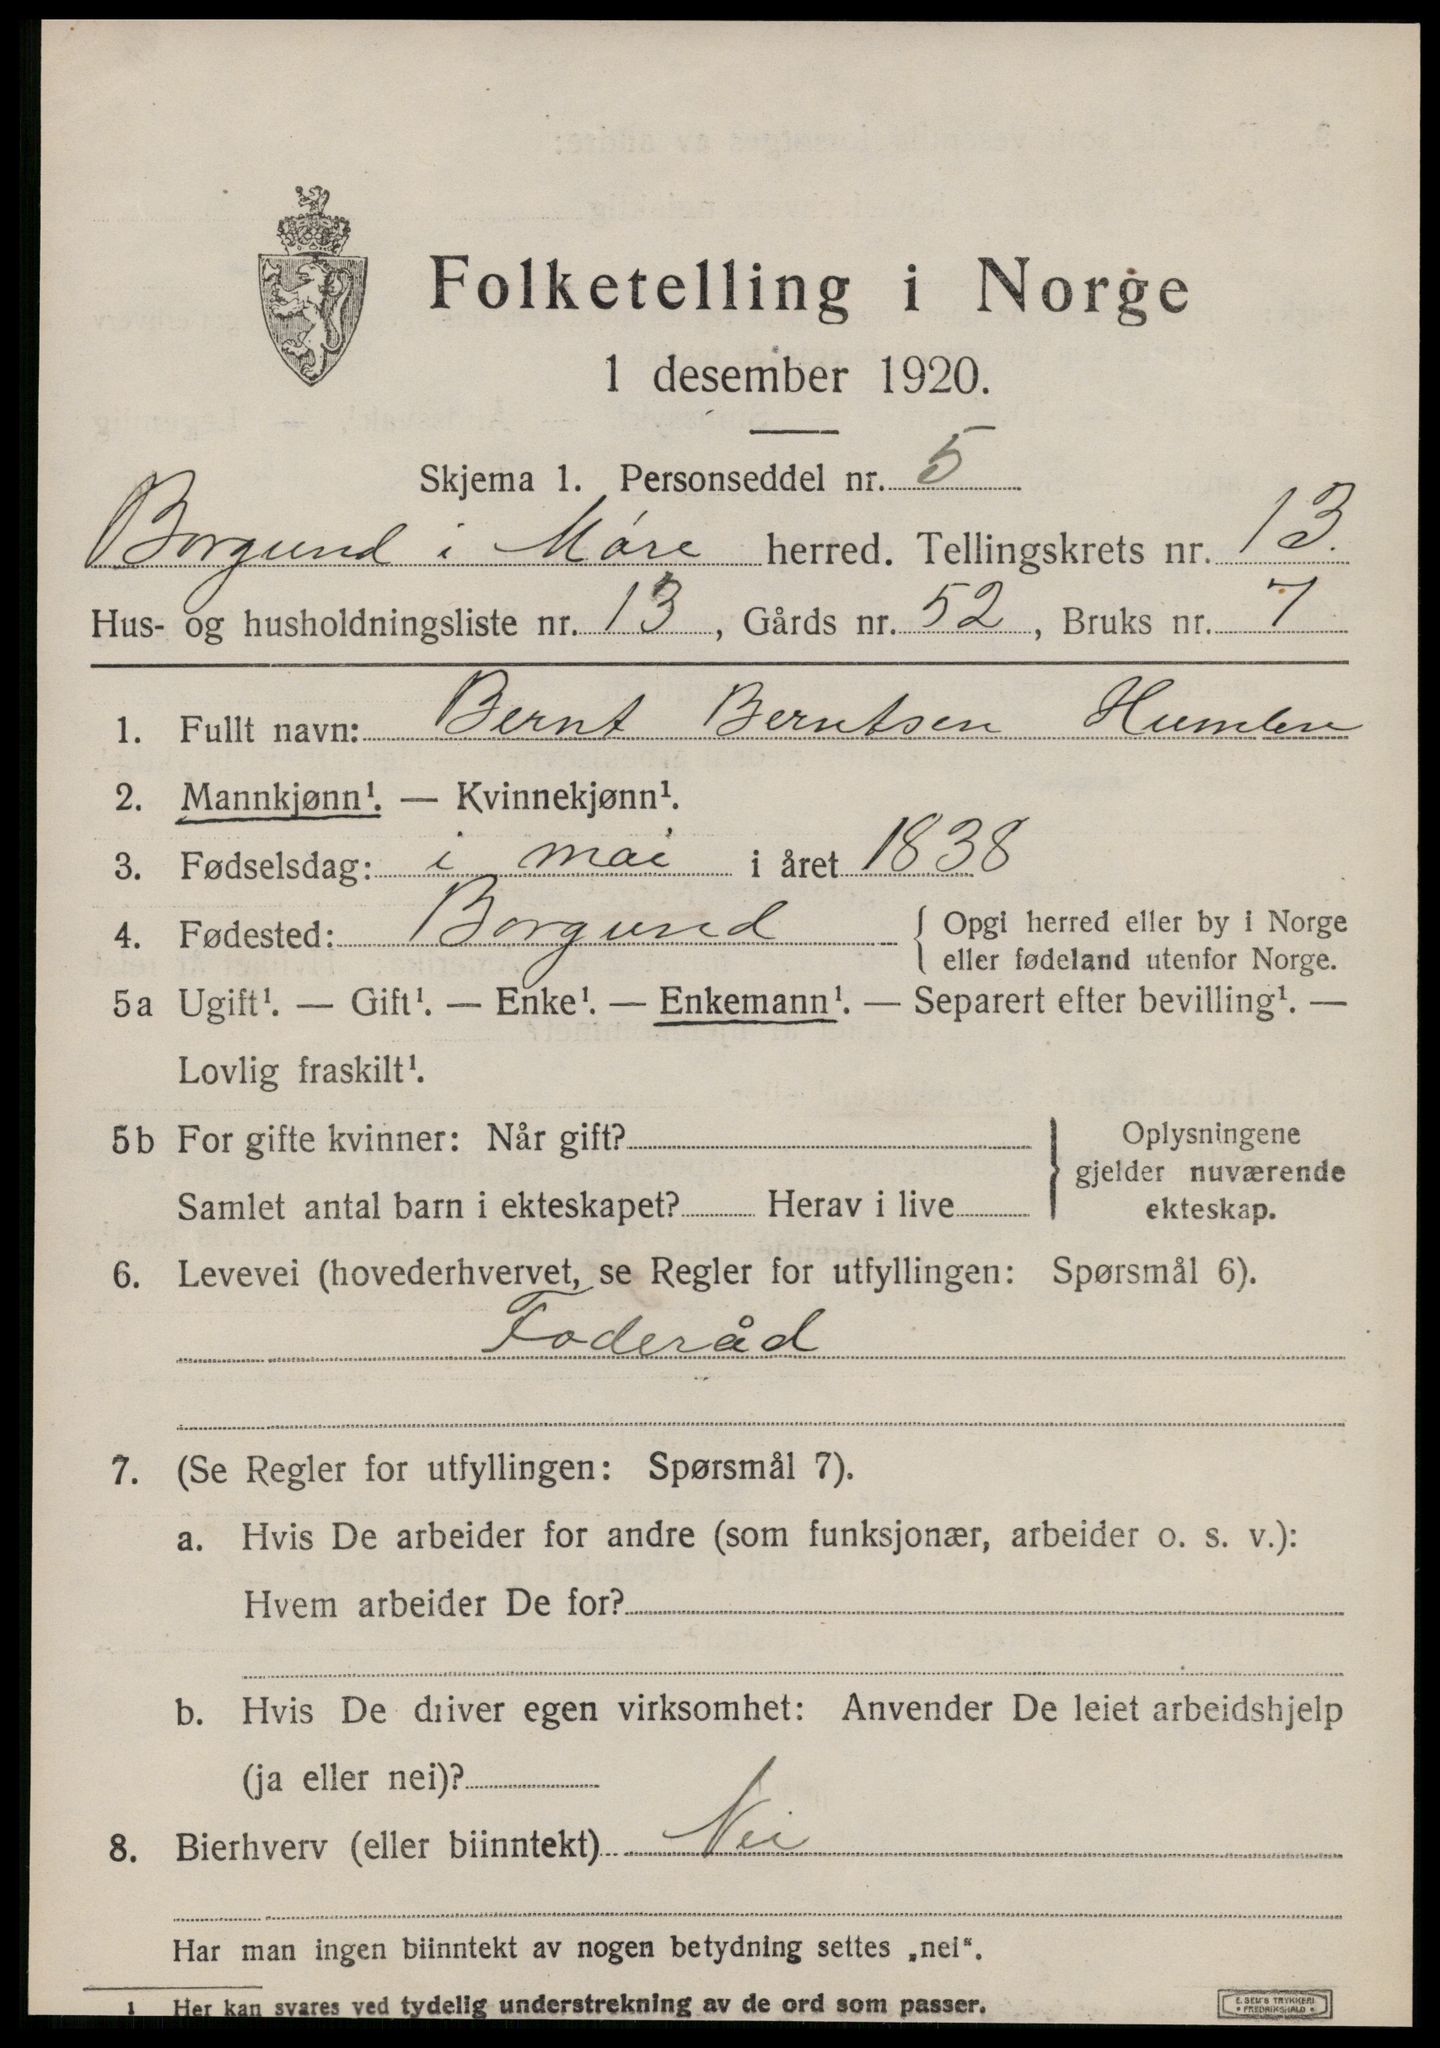 Folketelling i Norge
1 desember 1920.
Skjema 1. Personseddel nr. 5
Borgund i Møre herred. Tellingskrets nr. 13.
Hus- og husholdningsliste nr. 13, Gårds nr. 52, Bruks nr. 7
1. Fullt navn: Bernt Berntsen Humlen
2. Mannkjønn¹. — Kvinnekjønn¹.
3. Fødselsdag: i mai i året 1838
4. Fødested: Borgund { Opgi herred eller by i Norge
eller fødeland utenfor Norge.
5a Ugift¹. — Gift¹. — Enke¹. — Enkemann¹. — Separert efter bevilling¹. —
Lovlig fraskilt¹.
5b For gifte kvinner: Når gift?
Samlet antal barn i ekteskapet? Herav i live
} Oplysningene
gjelder nuværende
ekteskap.
6. Levevei (hovederhvervet, se Regler for utfyllingen: Spørsmål 6).
Foderåd
7. (Se Regler for utfyllingen: Spørsmål 7).
a. Hvis De arbeider for andre (som funksjonær, arbeider o. s. v.):
Hvem arbeider De for?
b. Hvis De driver egen virksomhet: Anvender De leiet arbeidshjelp
(ja eller nei)?
8. Bierhverv (eller biinntekt) Nei
Har man ingen biinntekt av nogen betydning settes „nei“.
1 Her kan svares ved tydelig understrekning av de ord som passer.
E. SEM'S TRYKKERI
• FREDRIKSHALD •